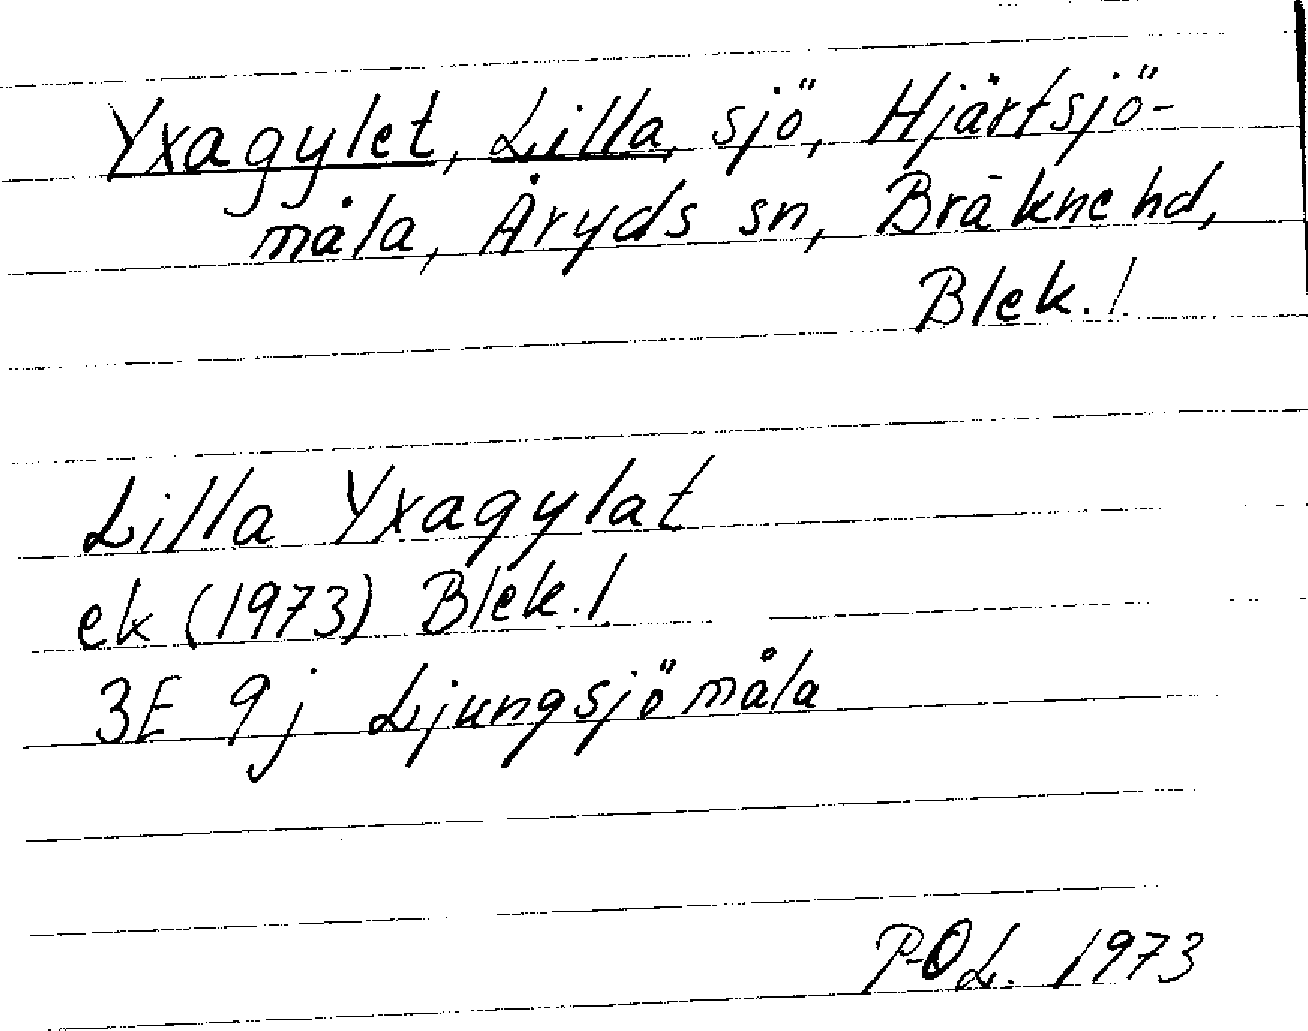 Yxagylet, Lilla, sjö, Hjärtsjö-
måla, Åryds sn, Bräkne hd,
Blek. l.
Lilla Yxagylat
ek (1973) Blek. l.
3E 9j Ljungsjömåla
P-OL. 1973